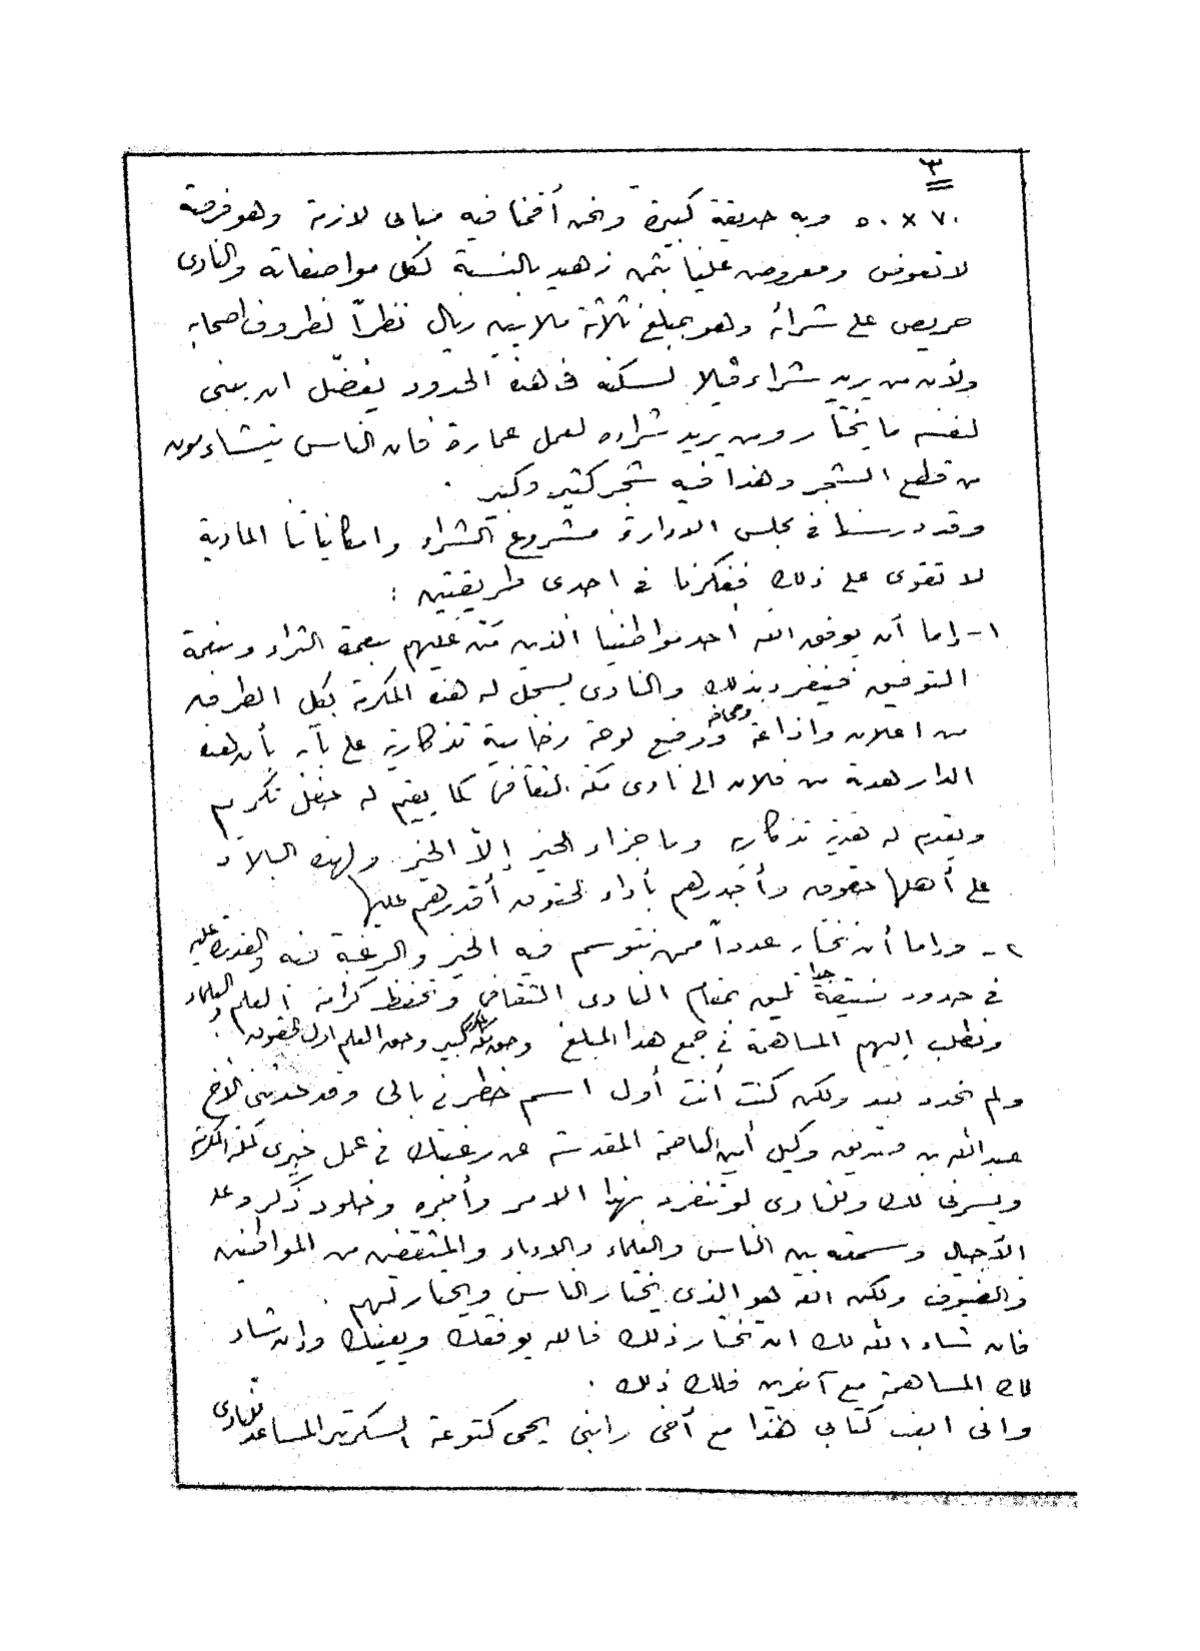 ٣
٧٠ × ٥٠ وبه حديقة كبيرة ونحن أقمنا فيه مباني لازمة وهو فرصة
لا تعوض ومعروض علينا بثمن زهيد بالنسبة لكل مواصفاته والنادى
حريص على شرائه وهو بمبلغ ثلاثة ملايين ريال نظراً لظروف اصحابه
ولأن من يريد شراء ڤيلا لسكنه فى هذه الحدود يفضّل ان يبنى
لنفسه ما يختار ومن يريد شراءه لعمل عمارة فان الناس يتشاءمون
من قطع الشجر وهذا فيه شجر كثير وكبير .
وقد درسنا فى مجلس الادارة مشروع الشراء وامكانياتنا المادية
لا تقوى على ذلك ففكرنا فى احدى طريقتين :
١- إما أن يوفق الله أحد مواطنينا الذين منّ عليهم بنعمة الثراء وبنعمة
التوفيق فينفرد بذلك والنادى يسجل له هذه المكرمة بكل الطرق
من اعلان واذاعة وصحافة ووضع لوحة رخامية تذكارية على بابه بأن هذه
الدار هدية من فلان الى نادى مكة الثقافى كما يقيم له حفل تكريم
ويقدم له هدية تذكارية وما جزاء الخير إلاّ الخير ولهذه البلاد
على أهلها حقوق وأجدرهم بأداء الحقوق أقدرهم عليها
٢- وإما أن نختار عدداً ممن نتوسم فيه الخير والرغبة فيه والقدرة عليه
فى حدود ضيقة جداً تليق بمقام النادى الثقافى وتحفظ كرامة العلم والعلماء
ونطلب إليهم المساهمة فى جمع هذا المبلغ وحق مكة كبير وحق العلم اول الحقوق .
ولم نحدد بعد ولكن كنت أنت أول اسم خطر فى بالى وقد حدثنى الأخ
عبدالله بن صديق وكيل أمين العاصمة المقدسة عن رغبتك فى عمل خيرى لمكة المكرمة
ويسرنى لك وللنادى لو تنفرد بهذا الامر وأجره وخلود ذكره على
الأجيال وسمعته بين الناس والعلماء والادباء والمثقفين من المواطنين
والضيوف ولكن الله هو الذى يختار الناس ويختار لهم .
فان شاء الله لك ان تختار ذلك فالله يوفقك ويعينك وإن شاء
لك المساهمة مع آخرين فلك ذلك .
وانى ابعث كتابى هذا مع أخى راضى يحى كتوعة السكرتير المساعد للنادى